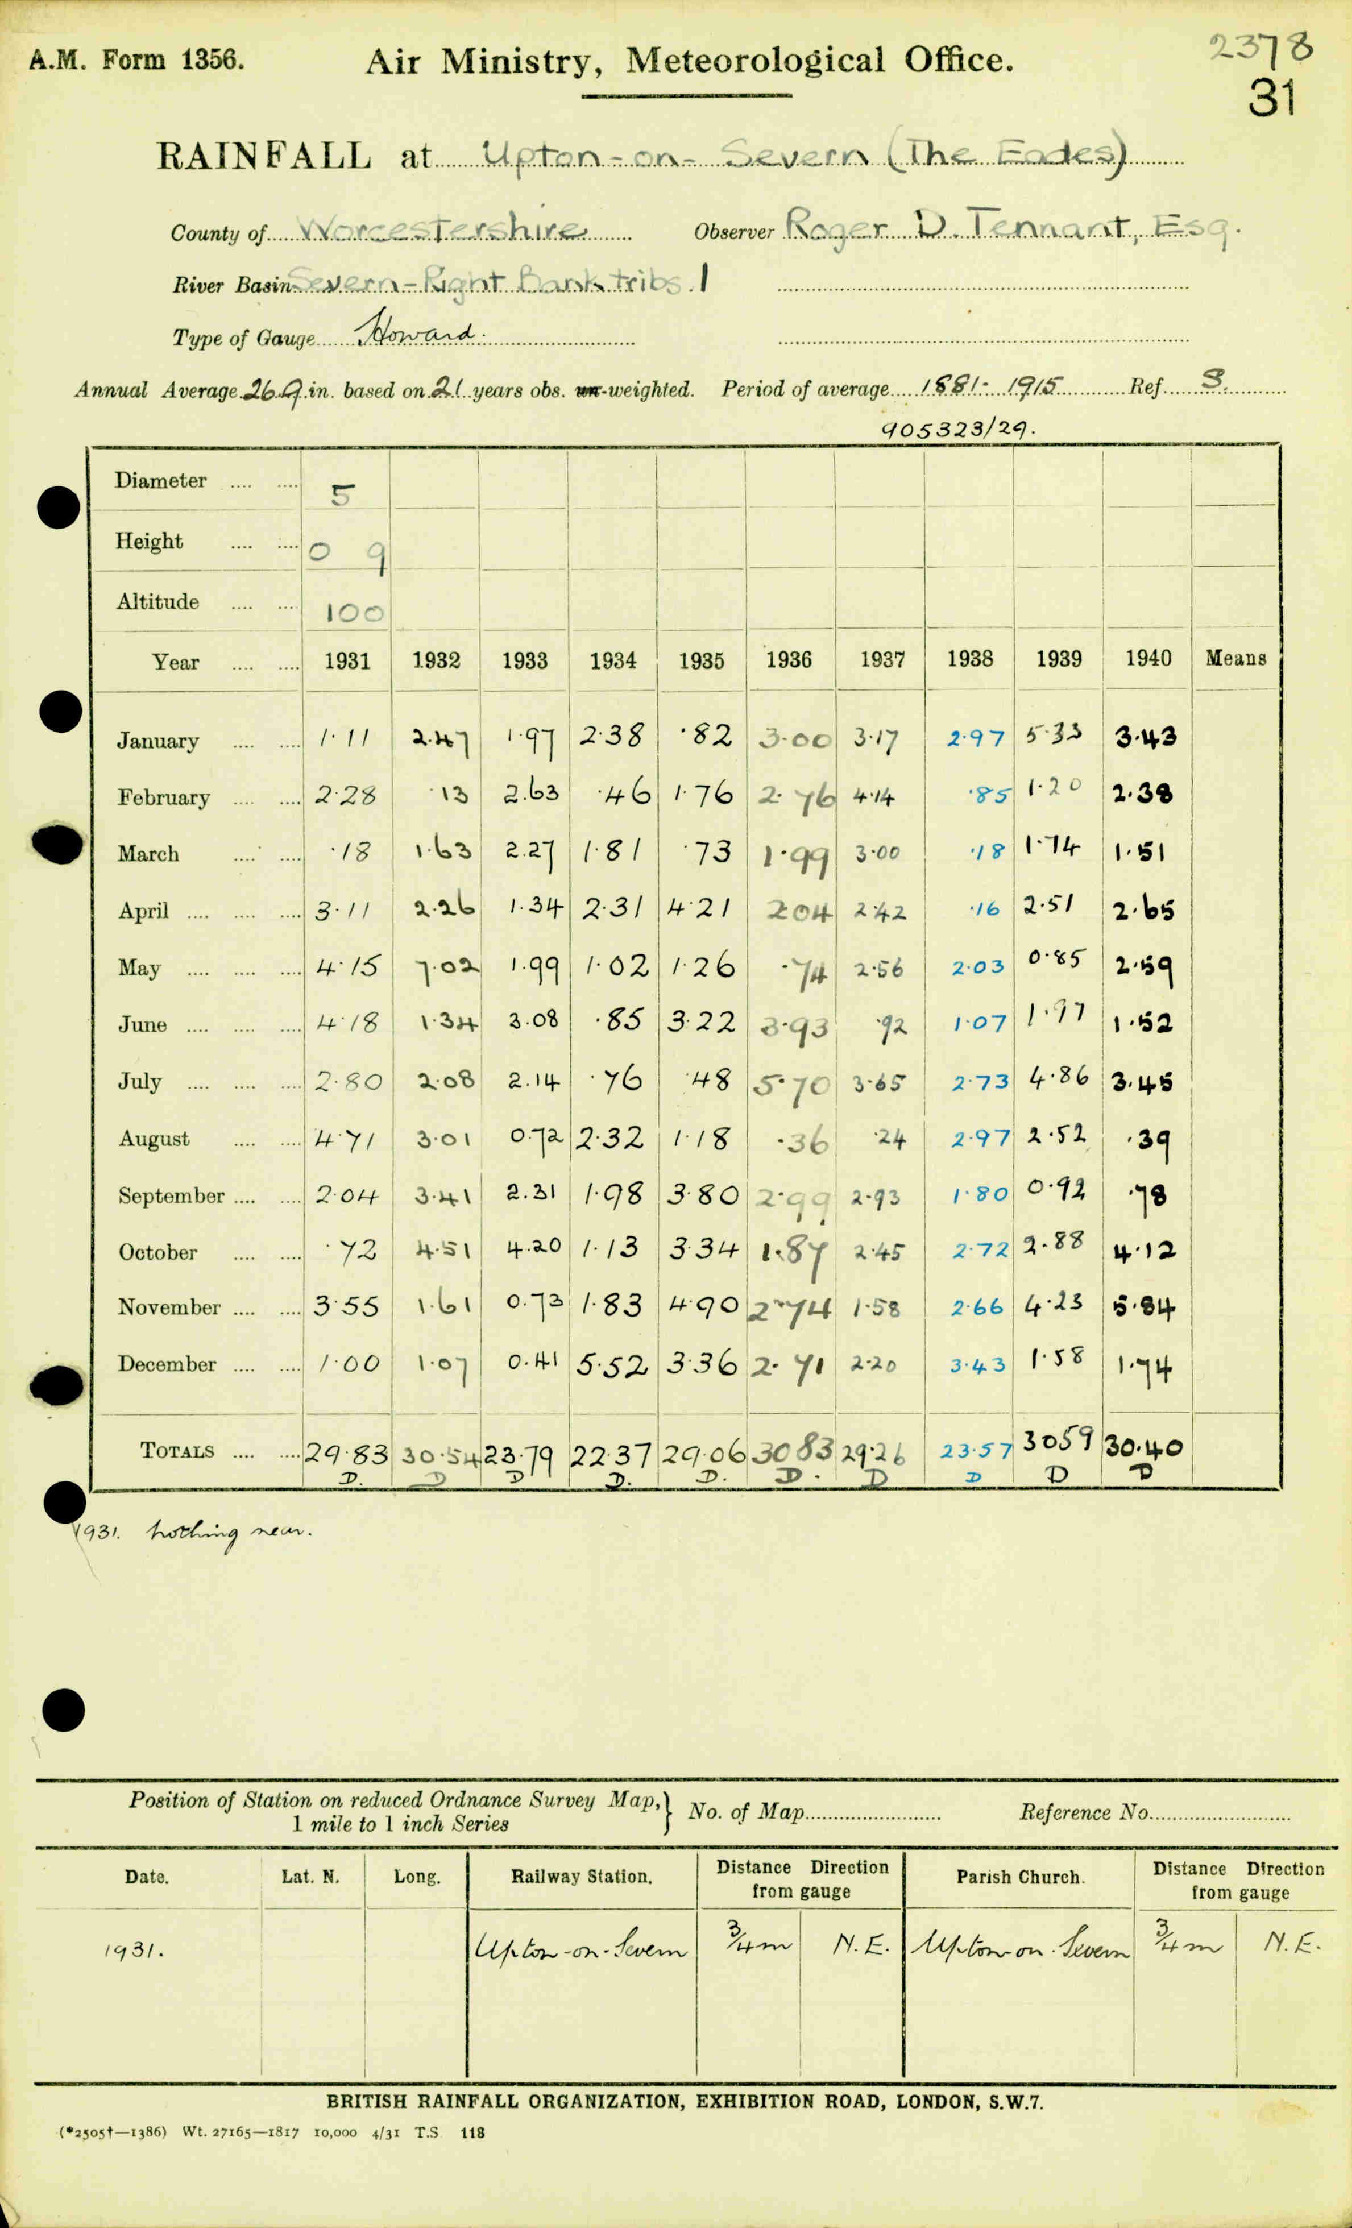 2378
A.M. Form 1356. Air Ministry, Meteorological Office.
31
RAINFALL at Upton-on-Severn (The Eades)
County of Worcestershire Observer Roger D. Tennant, Esq.
River Basin Severn-Right Bank tribs. 1
Type of Gauge Howard.
Annual Average 26.9 in. based on 21 years obs. un-weighted. Period of average 1881-1915 Ref. S.
905323/29.
Diameter 5
Height 0 9
Altitude 100
Year 1931 1932 1933 1934 1935 1936 1937 1938 1939 1940 Means
January 1.11 2.47 1.97 2.38 .82 3.00 3.17 2.97 5.33 3.43
February 2.28 .13 2.63 .46 1.76 2.76 4.14 .85 1.20 2.38
March .18 1.63 2.27 1.81 .73 1.99 3.00 .18 1.74 1.51
April 3.11 2.26 1.34 2.31 4.21 2 04 2.42 .16 2.51 2.65
May 4.15 7.02 1.99 1.02 1.26 .74 2.56 2.03 0.85 2.59
June 4.18 1.34 3.08 .85 3.22 3.93 .92 1.07 1.97 1.52
July 2.80 2.08 2.14 .76 .48 5.70 3.65 2.73 4.86 3.45
August 4.71 3.01 0.72 2.32 1.18 .36 .24 2.97 2.52 .39
September 2.04 3.41 2.31 1.98 3.80 2.99 2.93 1.80 0.92 .78
October .72 4.51 4.20 1.13 3.34 1.87 2.45 2.72 2.88 4.12
November 3.55 1.61 0.73 1.83 4.90 2.74 1.58 2.66 4.23 5.84
December 1.00 1.07 0.41 5.52 3.36 2.71 2.20 3.43 1.58 1.74
TOTALS 29.83 30.54 23.79 22.37 29.06 30 83 29.26 23.57 30 59 30.40
D. D D D. D. D. D D D D
1931. Nothing near.
Position of Station on reduced Ordnance Survey Map, } No. of Map Reference No.
1 mile to 1 inch Series
Date. Lat. N. Long. Railway Station. Distance Direction from gauge Parish Church. Distance Direction from gauge
1931. Upton-on-Severn 3/4 m N.E. Upton-on-Severn 3/4 m N.E.
BRITISH RAINFALL ORGANIZATION, EXHIBITION ROAD, LONDON, S.W.7.
(*2505†—1386) Wt. 27165—1817 10,000 4/31 T.S. 118